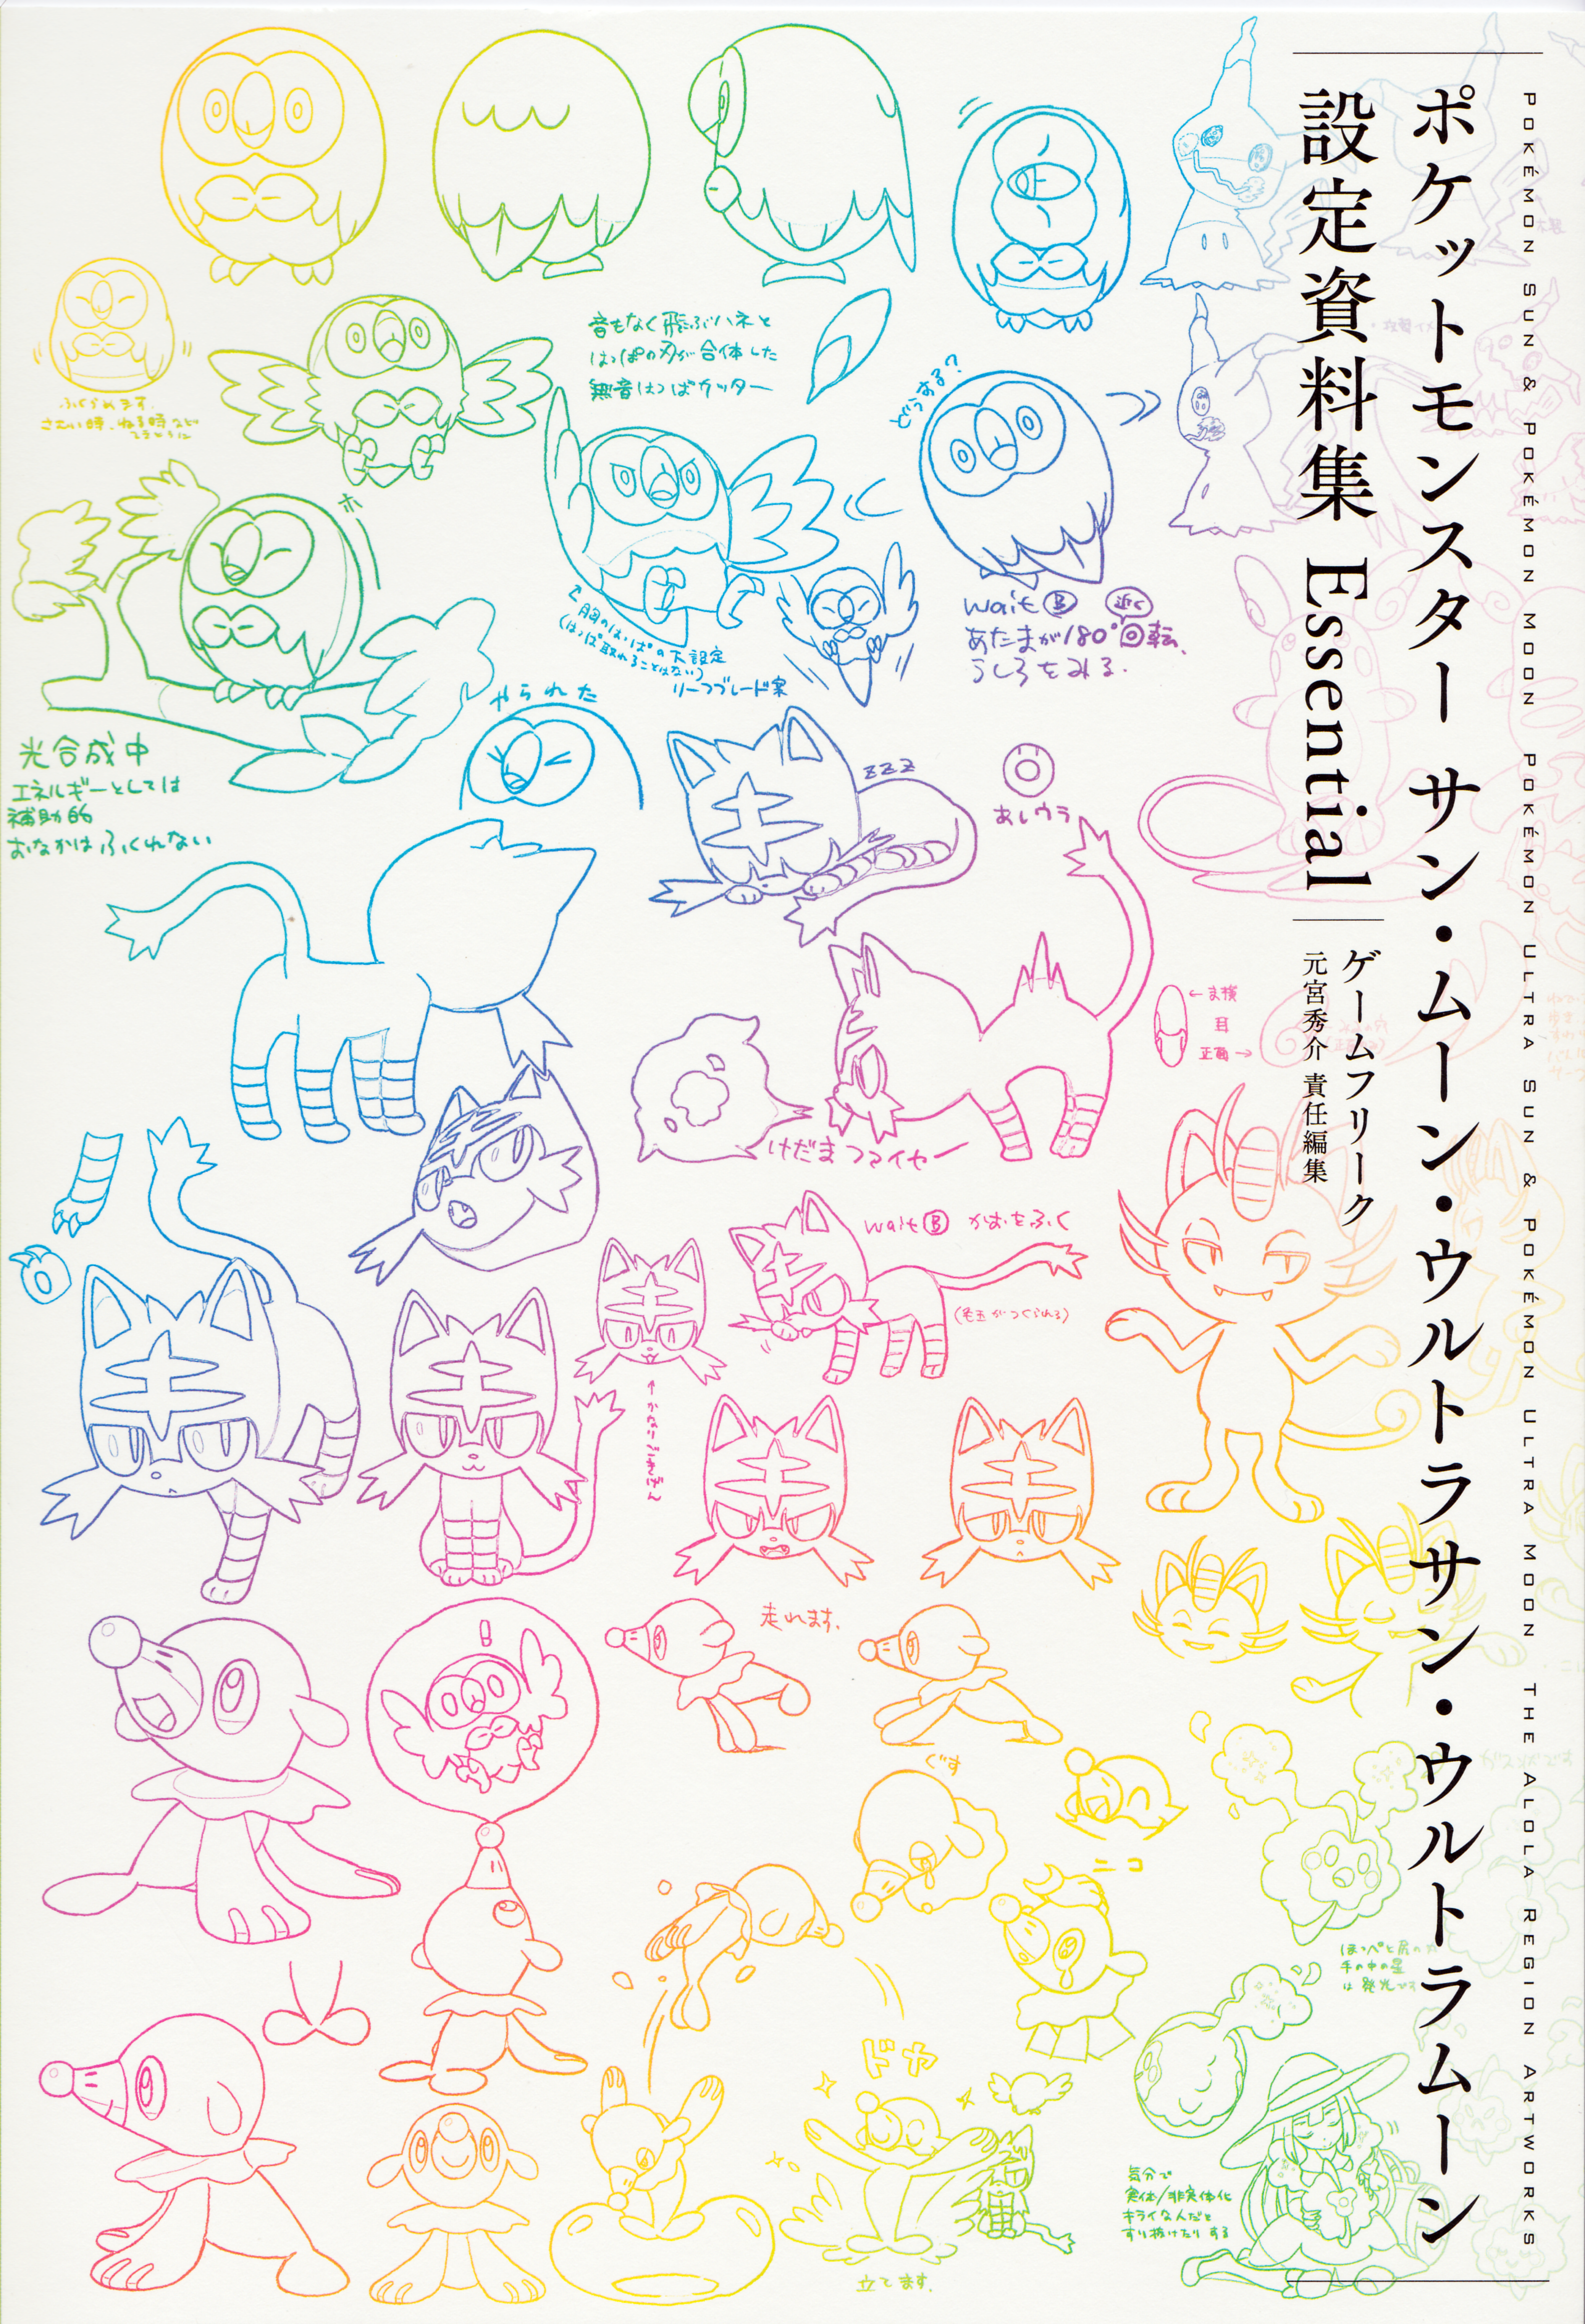 POKÉMON SUN & POKÉMON MOON POKÉMON ULTRA SUN & POKÉMON ULTRA MOON THE ALOLA REGION ARTWORKS
ポケットモンスター サン・ムーン・ウルトラサン・ウルトラムーン
設定資料集 Essential
ゲームフリーク
元宮秀介 責任編集
音もなく飛ぶハネと
はっぱの刃が合体した
無音はっぱカッター
どうする?
ふくられます。
さむい時、ねる時など
ホ
胸のはっぱの下設定
(はっぱ取れることはない)
リーフブレード案
wait B 近く
あたまが180°回転、
うしろをみる.
やられた
光合成中
エネルギーとしては
補助的
おなかはふくれない
zzz
あしウラ
←ま横
耳
正面→
けだまファイヤー
wait B かおをふく
(毛玉がつくられる)
↑かなりごきげん
!
走れます.
ぐす
ニコ
ドヤ
立てます.
ほっぺと尻の
手の中の星
は発光
気分で
実体/非実体化
キライな人だと
すり抜けたりする